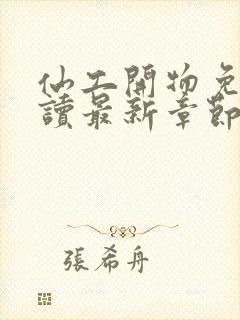 仙工開物免
讀最新章節
張希舟